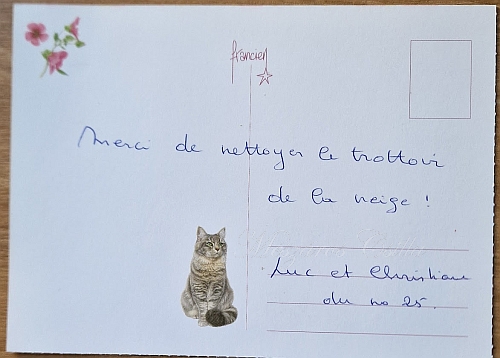 francien
Merci de nettoyer le trottoir
de la neige !
Luc et Christian
du no 25.